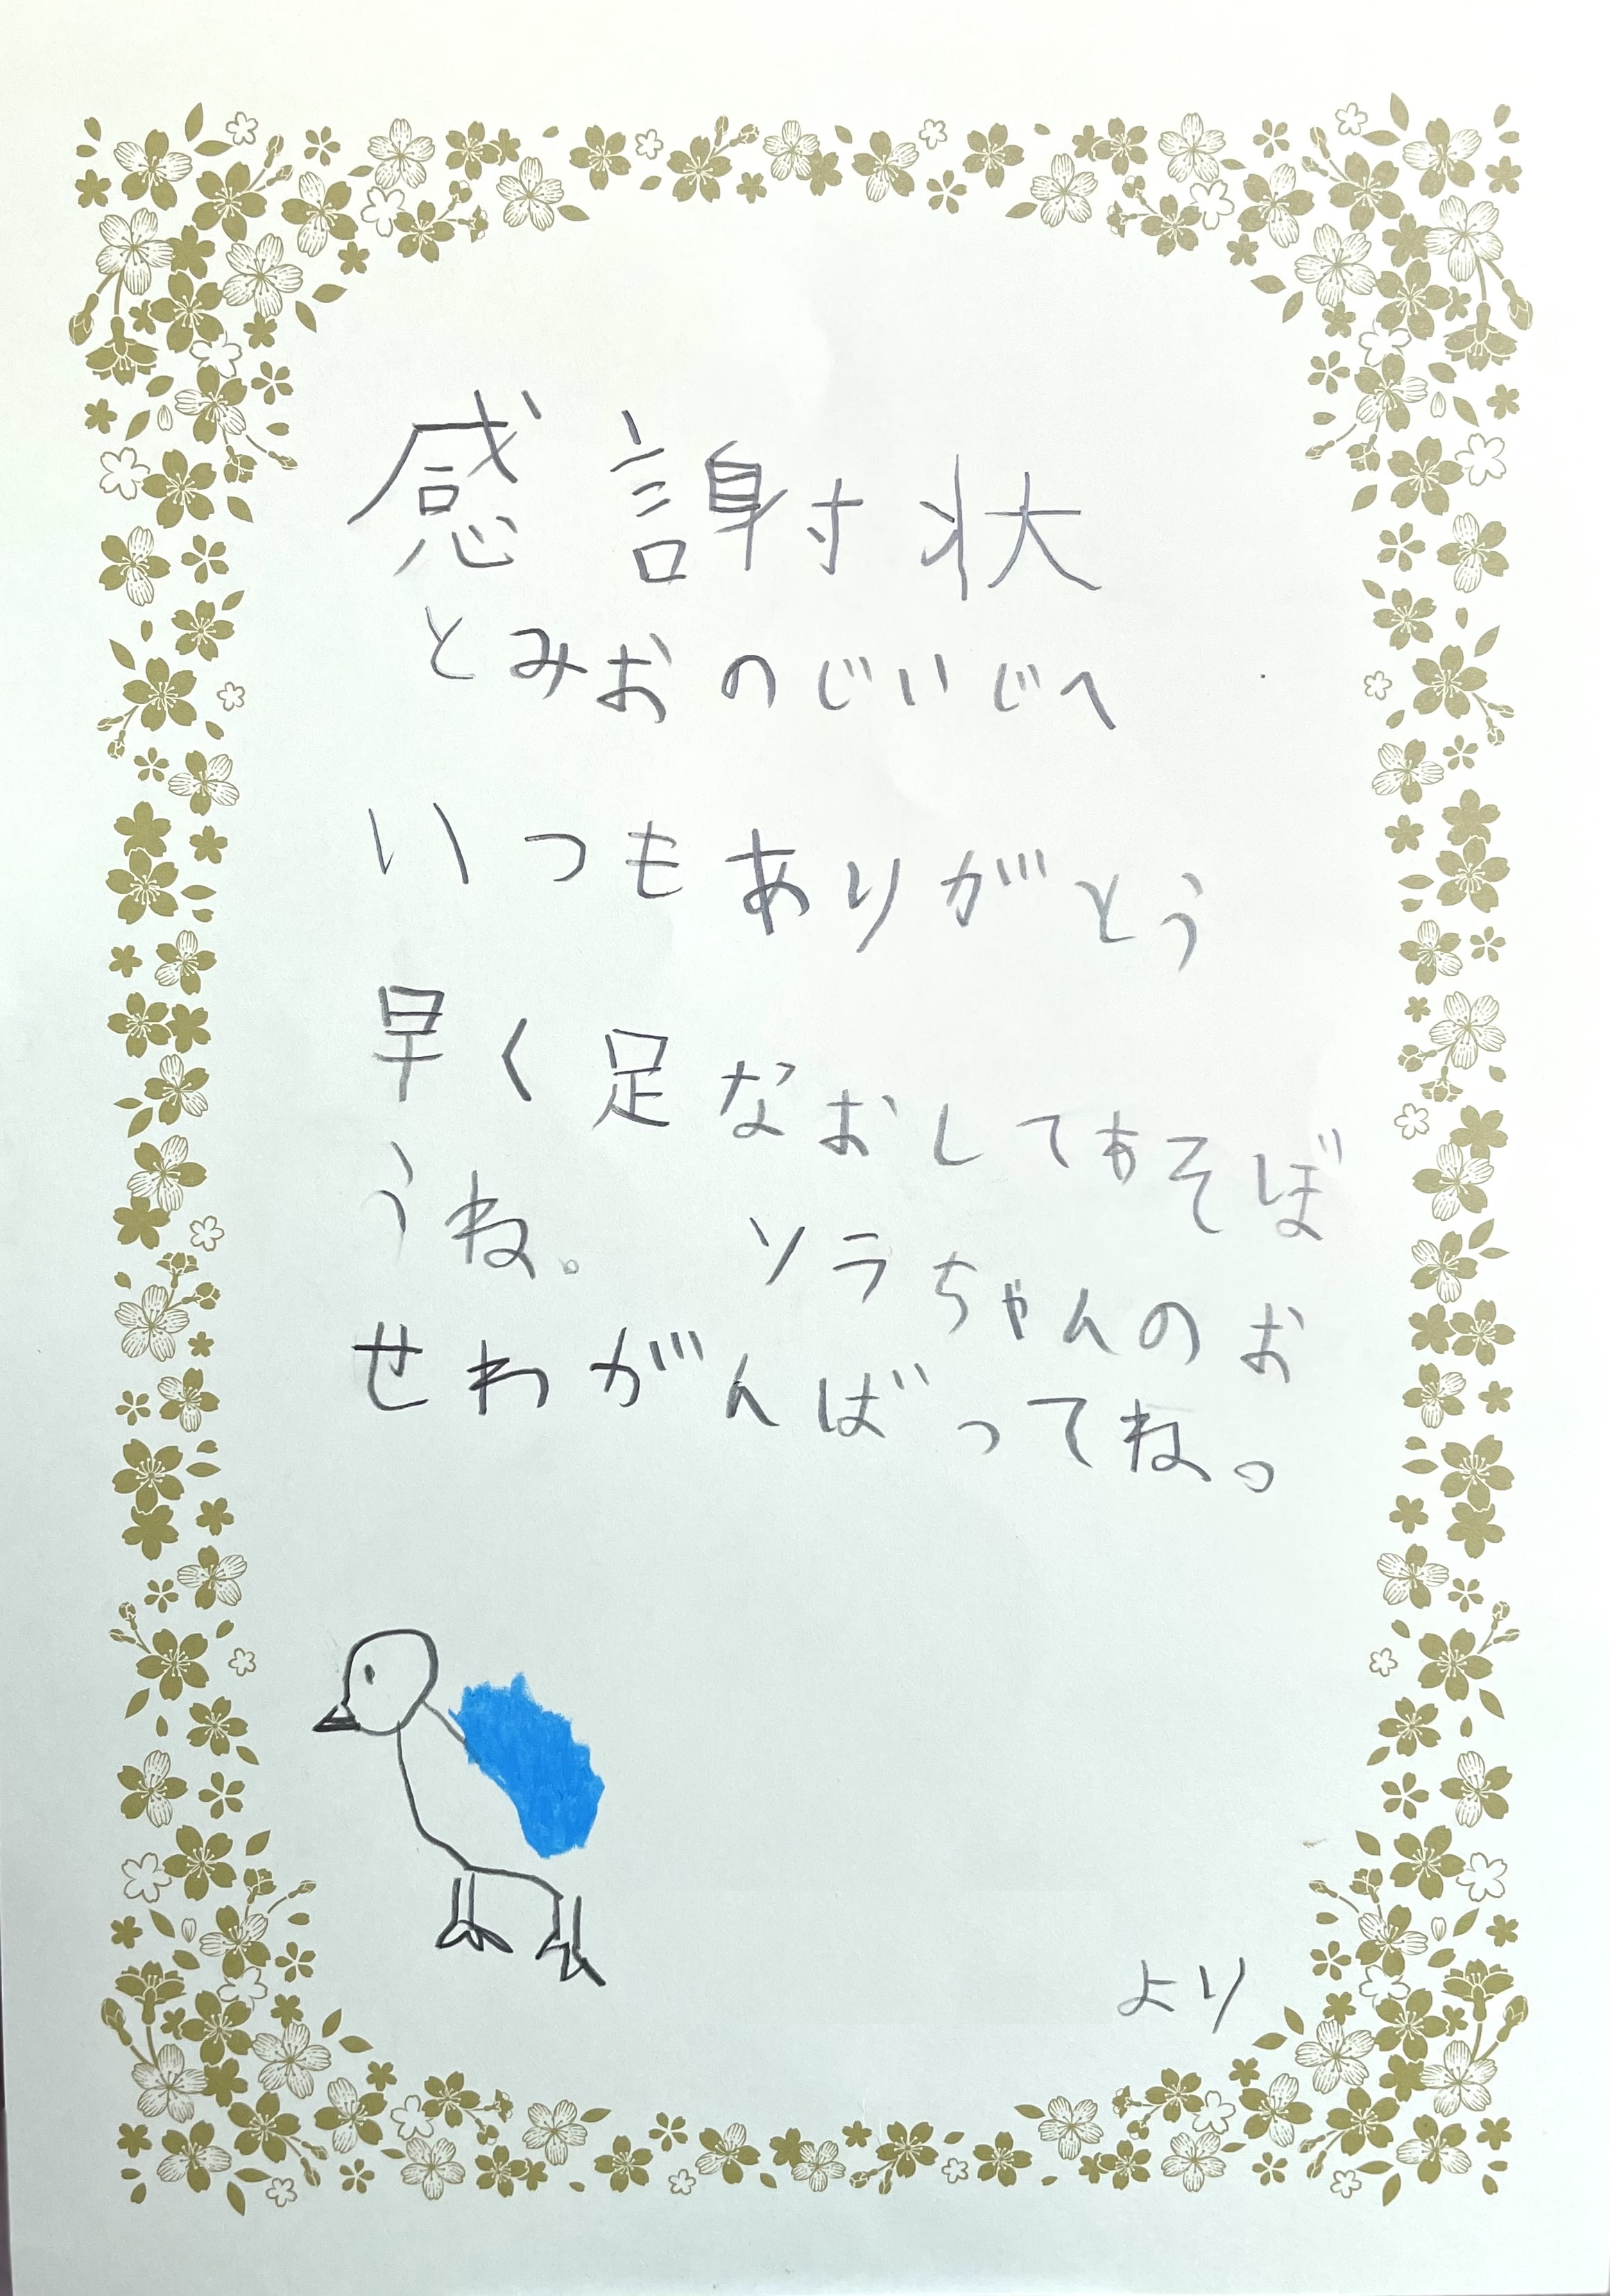 感謝状
とみおのじいじへ
いつもありがとう
早く足なおしてあそぼ
うね。 ソラちゃんのお
せわがんばってね。
より